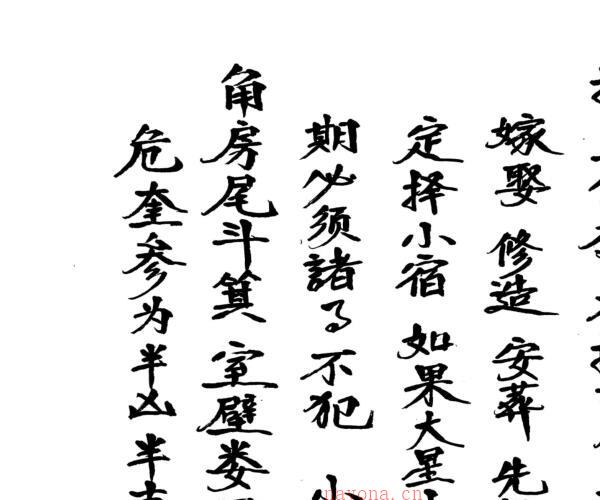 嫁娶修造安葬先
定择小宿如果大星
期必须諸事不犯
角房尾斗箕室壁娄
危奎参为半凶半吉
nayona.cn